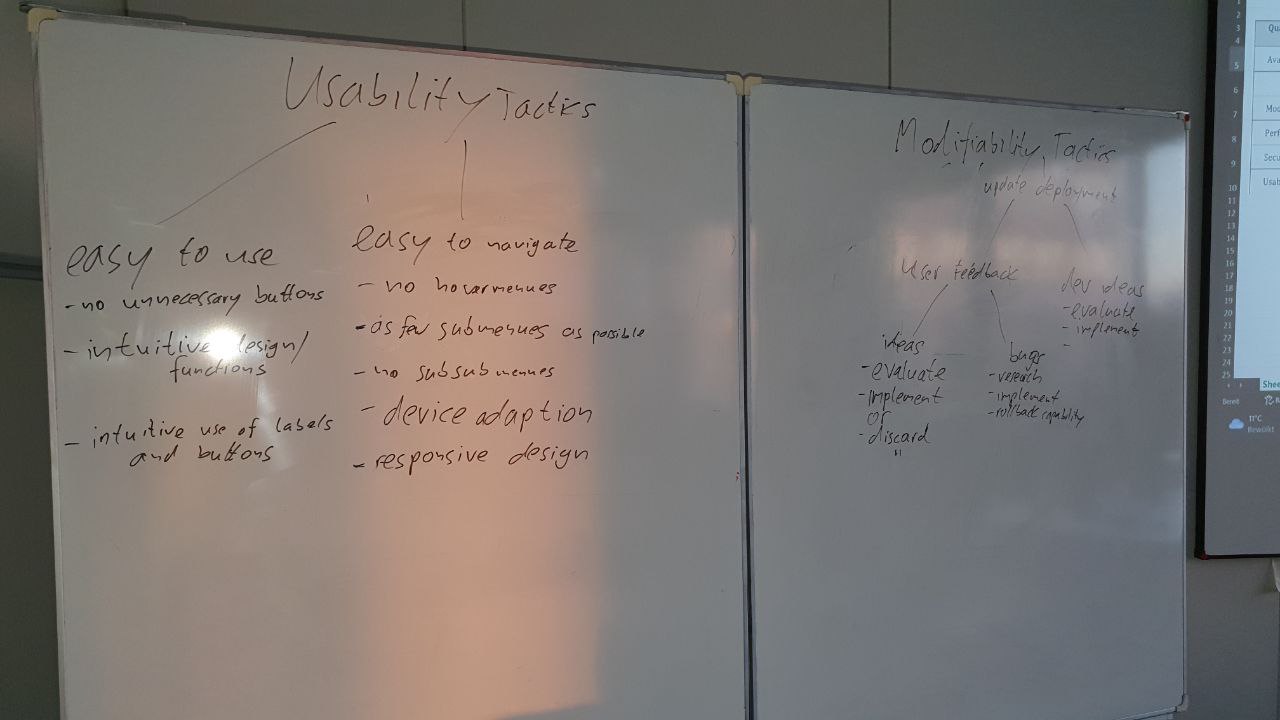 Usability Tactics
easy to use
- no unnecessary buttons
- intuitive design/
functions
- intuitive use of labels
and buttons
easy to navigate
- no hovermenues
- as few submenues as possible
- no subsubmenues
- device adaption
- responsive design
Modifiability Tactics
update deployment
User feedback
ideas
- evaluate
- implement
or
- discard
bugs
- research
- implement
- rollback capability
dev ideas
- evaluate
- implement
-
1
2
3
4
5
6
7
8
9
10
11
12
13
14
15
16
17
18
19
20
21
22
23
24
25
Qu
Ava
Mod
Perf
Secu
Usab
Shee
Bereit
11°C
Bewölkt